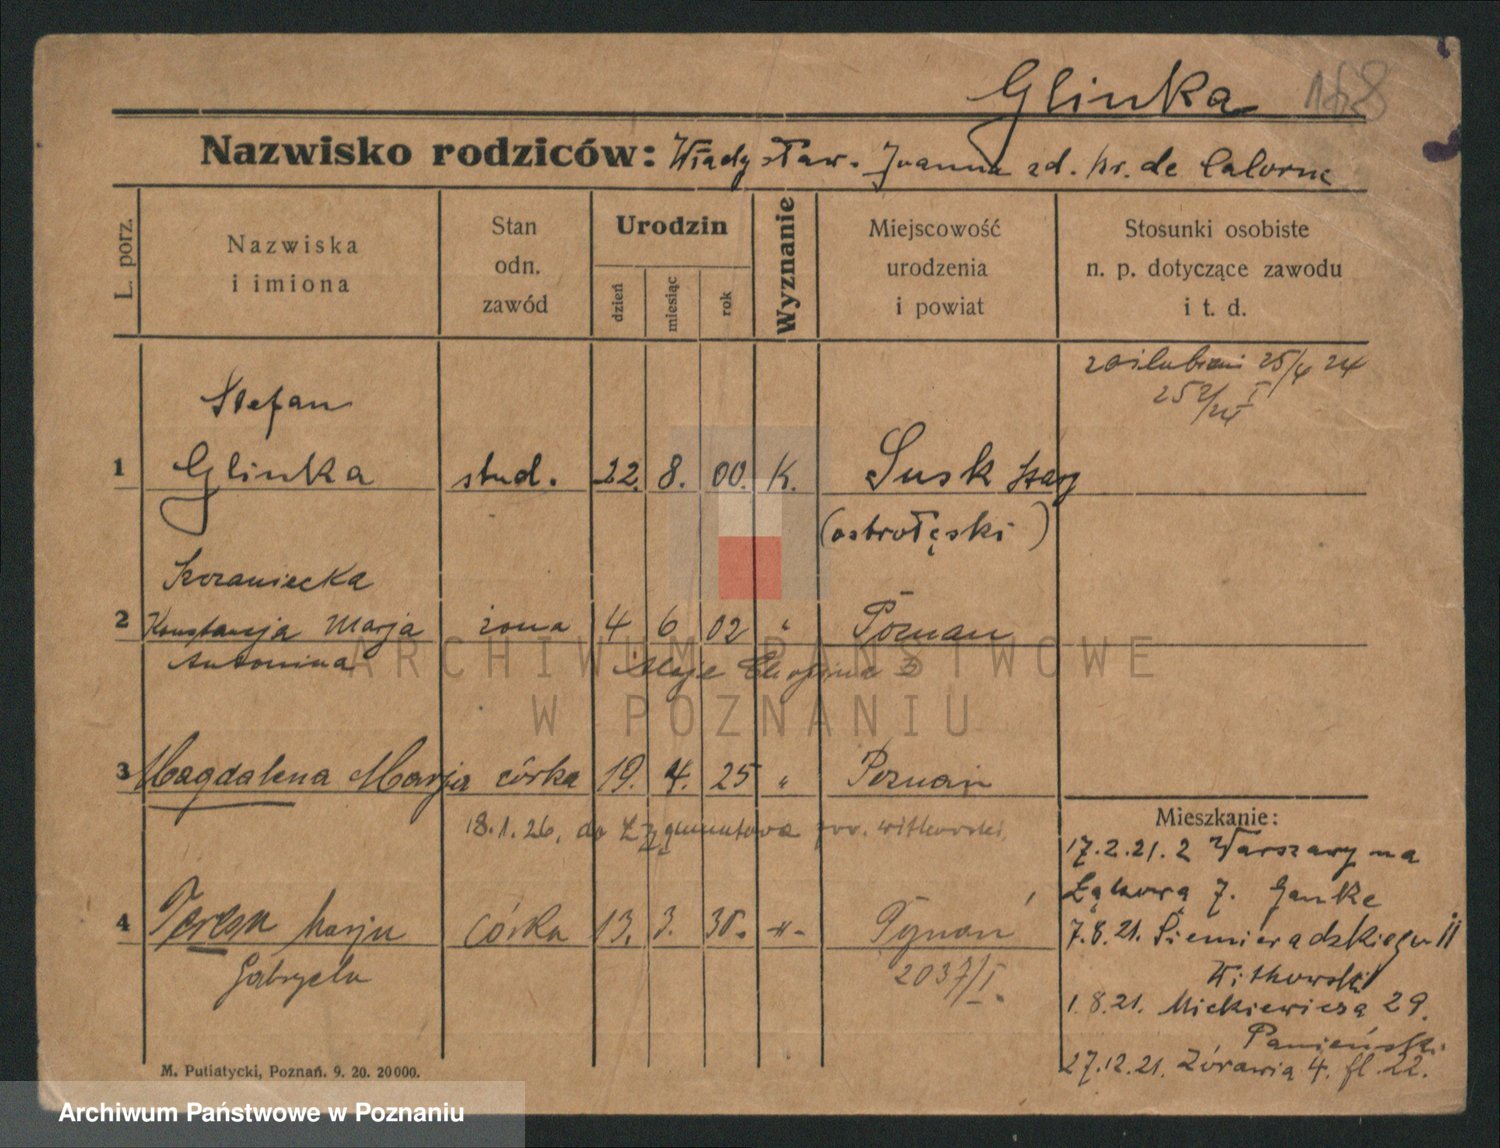 Glinka 168
Nazwisko rodziców: Władysław. Joanna zd. hr. de
L. porz.
Nazwiska
i imiona
Stan
odn.
zawód
Urodzin
dzień
miesiąc
rok
Wyznanie
Miejscowość
urodzenia
i powiat
Stosunki osobiste
n. p. dotyczące zawodu
i t. d.
25/4 24
Stefan
1 Glinka stud. 22. 8. 00. K. Susk
(ostrołęski)
Szczaniecka
2 Konstancja Marja żona 4 6 02 " Poznań
Antonina
3 Magdalena Marja córka 19. 4. 25 " Poznań
18.1.26, do pow. witkowski,
4 Teresa Marja córka 13. 3. 30. -"-
Gabryela 2037/I.
Mieszkanie:
17.2.21. z Warszawy na
Łąkową 7.
7.8.21. Siemieradzkiego 11
Witkowski
1.8.21. Mickiewicza 29.
27.12.21. Żórawia 4.
M. Putiatycki, Poznań. 9. 20. 20000.
ARCHIWUM PAŃSTWOWE
W POZNANIU
Archiwum Państwowe w Poznaniu